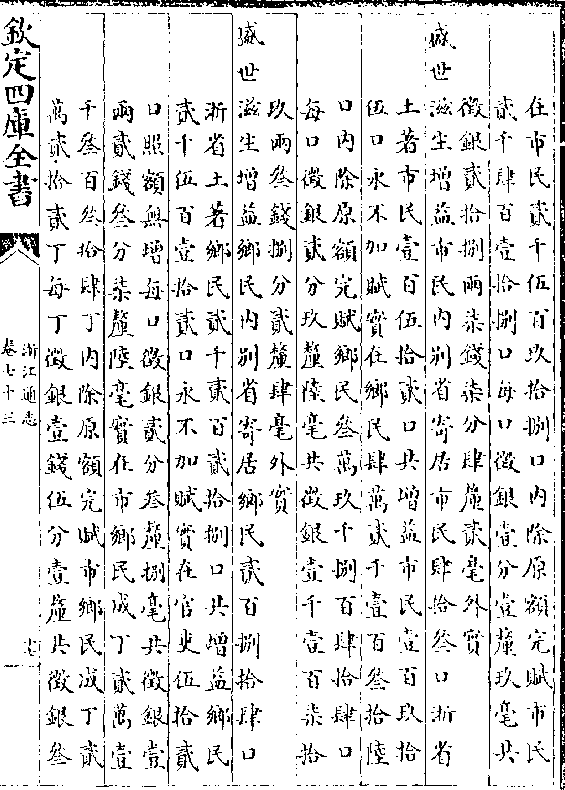 在市民貳千伍百玖拾捌口內除原額完賦市民
貳千肆百壹拾捌口每口徵銀壹分壹釐玖毫共
徵銀貳拾捌兩柒錢柒分肆釐貳毫外實
盛世滋生增益市民內別省寄居市民肆拾叁口浙省
土著市民壹百伍拾貳口共增益市民壹百玖拾
伍口永不加賦實在鄉民肆萬貳千壹百叁拾陸
口內除原額完賦鄉民叁萬玖千捌百肆拾肆口
每口徵銀貳分玖釐陸毫共徵銀壹千壹百柒拾
玖兩叁錢捌分貳釐肆毫外實
盛世滋生增益鄉民內別省寄居鄉民貳百捌拾肆口
浙省土著鄉民貳千貳百貳拾捌口共增益鄉民
貳千伍百壹拾貳口永不加賦實在官吏伍拾貳
口照額無增每口徵銀貳分叁釐捌毫共徵銀壹
兩貳錢叁分柒釐陸毫實在市鄉民成丁貳萬壹
千叁百叁拾肆丁內除原額完賦市鄉民成丁貳
萬貳拾貳丁每丁徵銀壹錢伍分壹釐共徵銀叁
欽定四庫全書
浙江通志
卷七十三